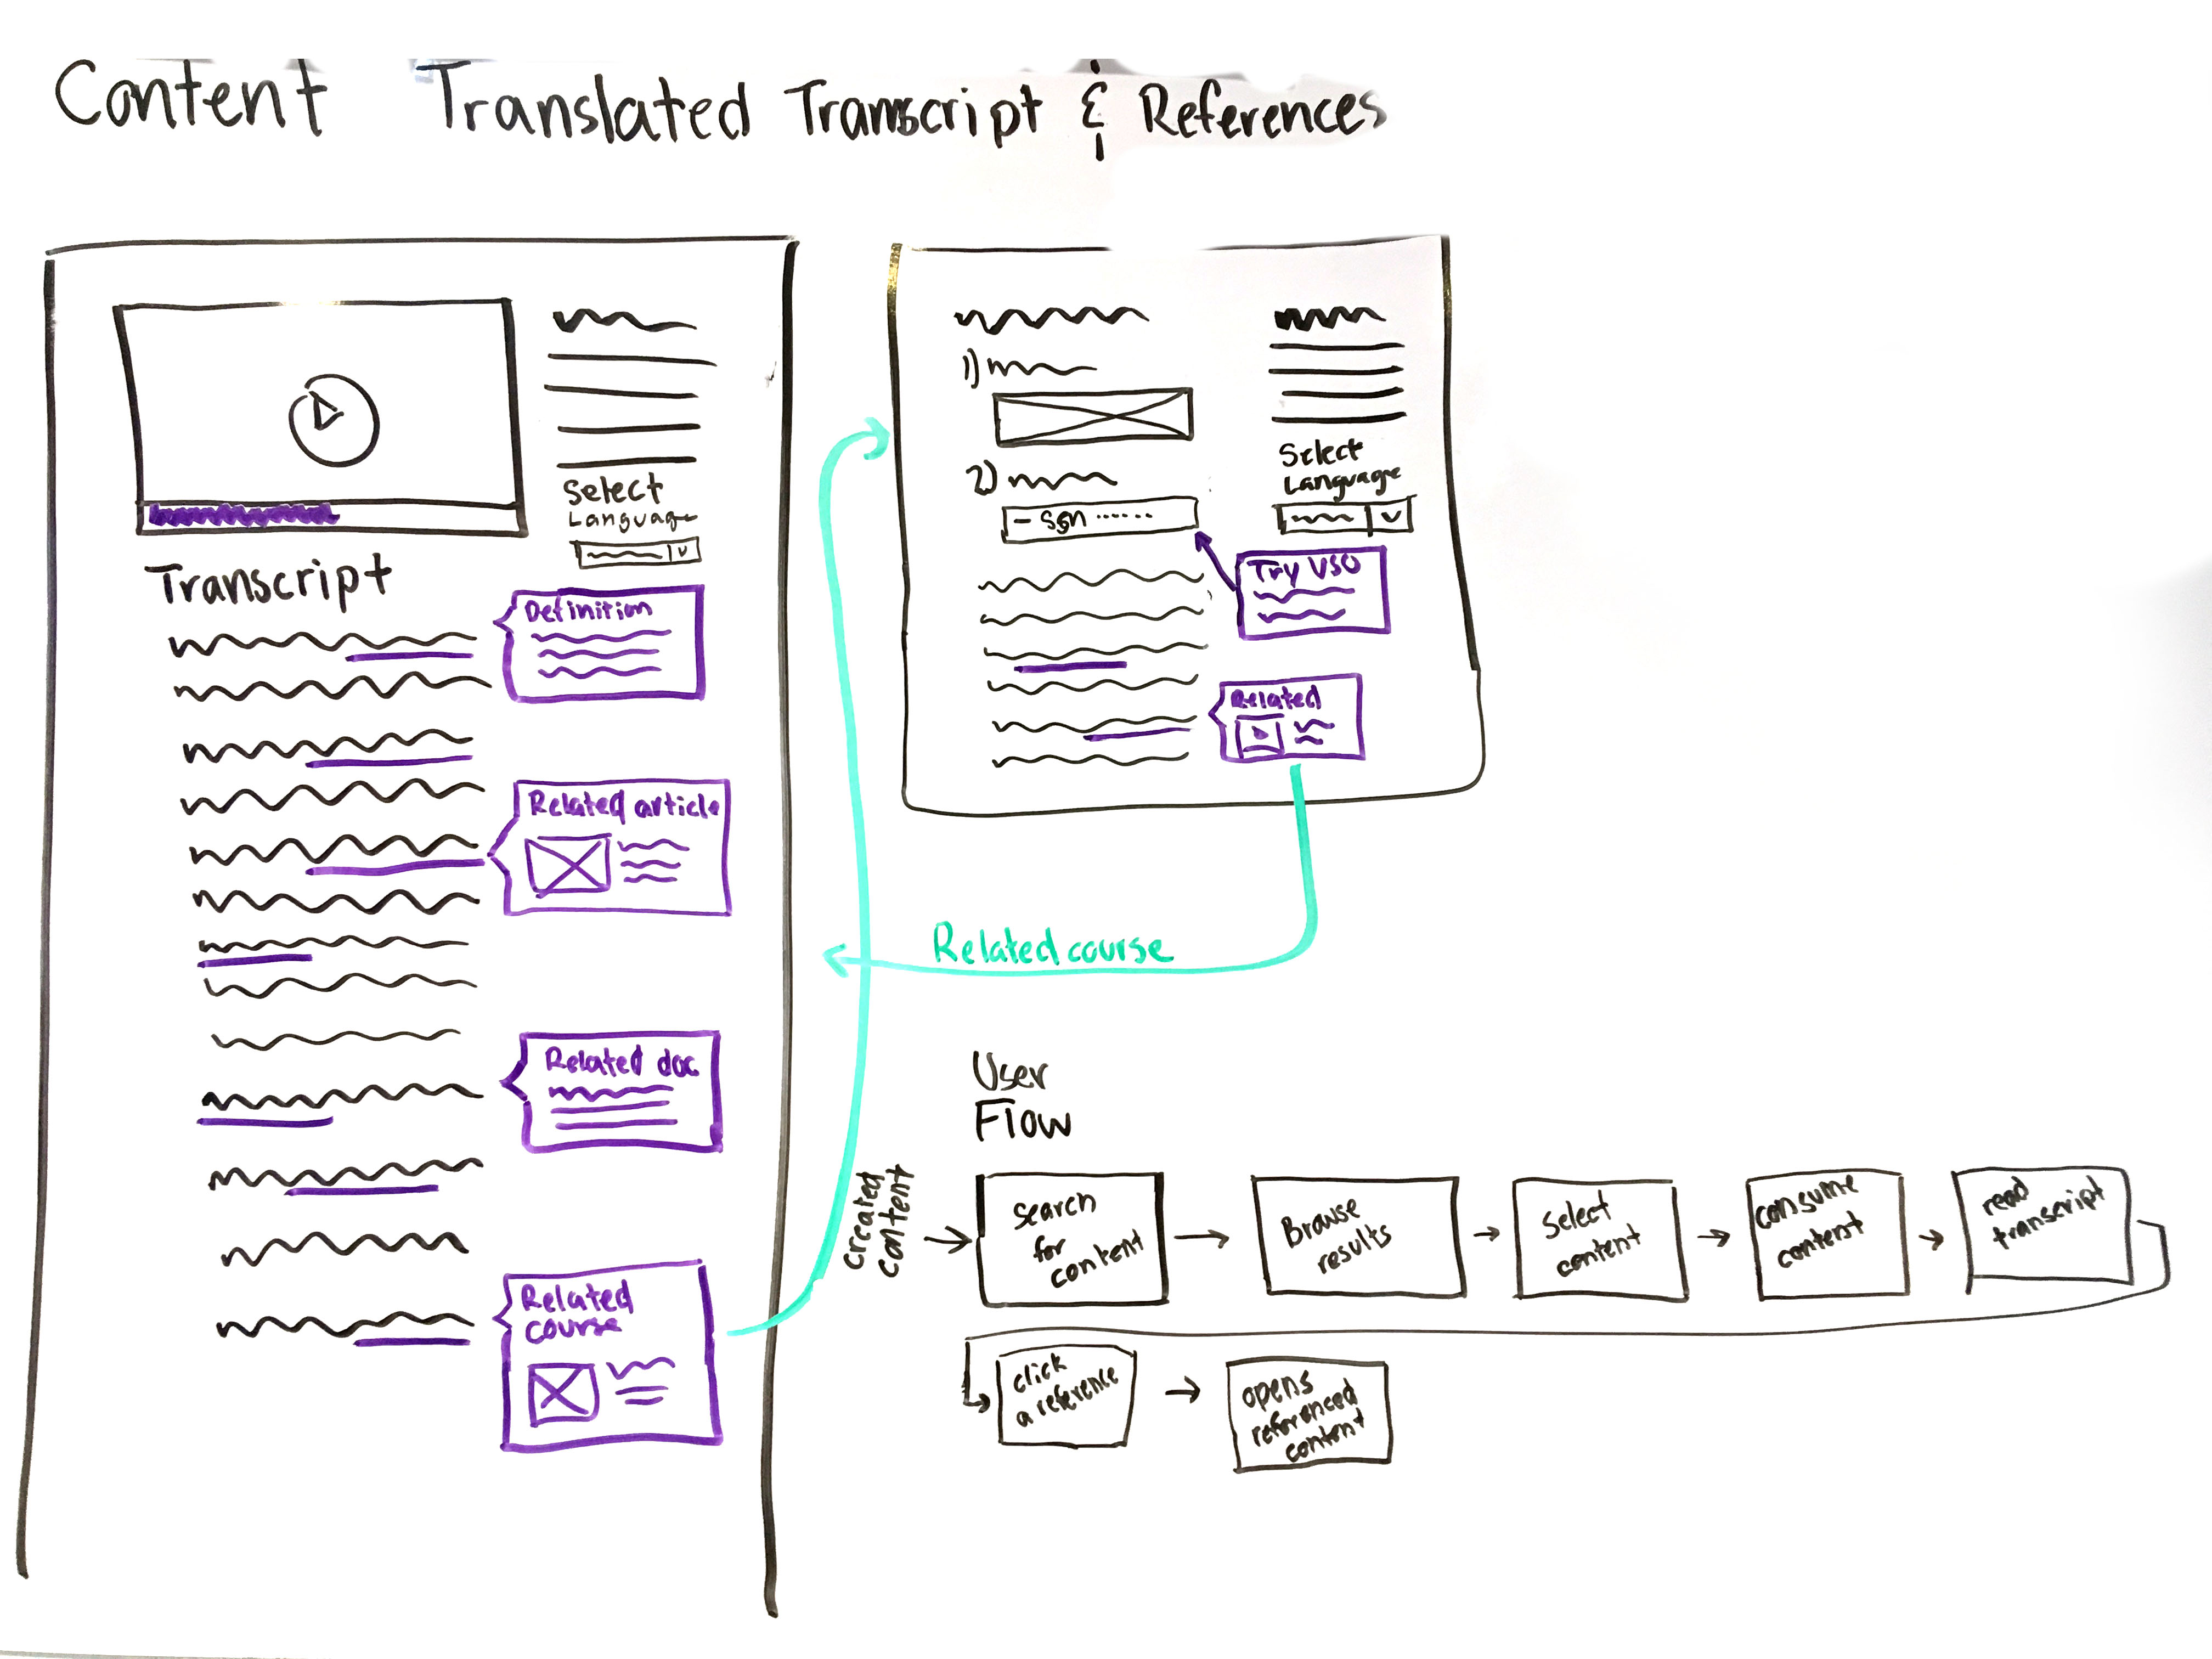 Content Translated Transcript & References
Select
Language
Transcript
Definition
Related article
Related doc
Related
course
1)
2)
Select
Language
Try VSO
Related
Related course
User
Flow
created
content
search
for
content
Browse
results
Select
content
consume
content
read
transcript
click
a reference
opens
referenced
content